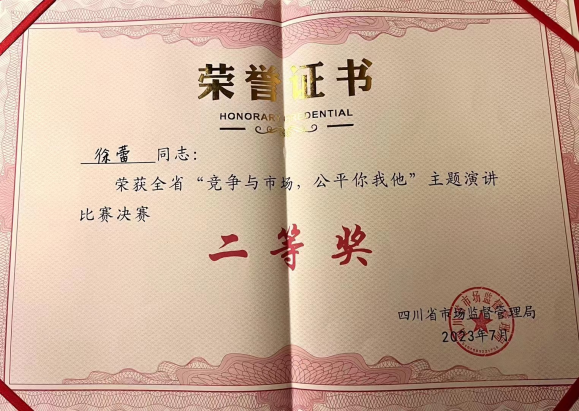 荣誉证书
HONORARY CREDENTIAL
徐蕾 同志：
荣获全省“竞争与市场，公平你我他”主题演讲
比赛决赛
二等奖
四川省市场监督管理局
2023年7月